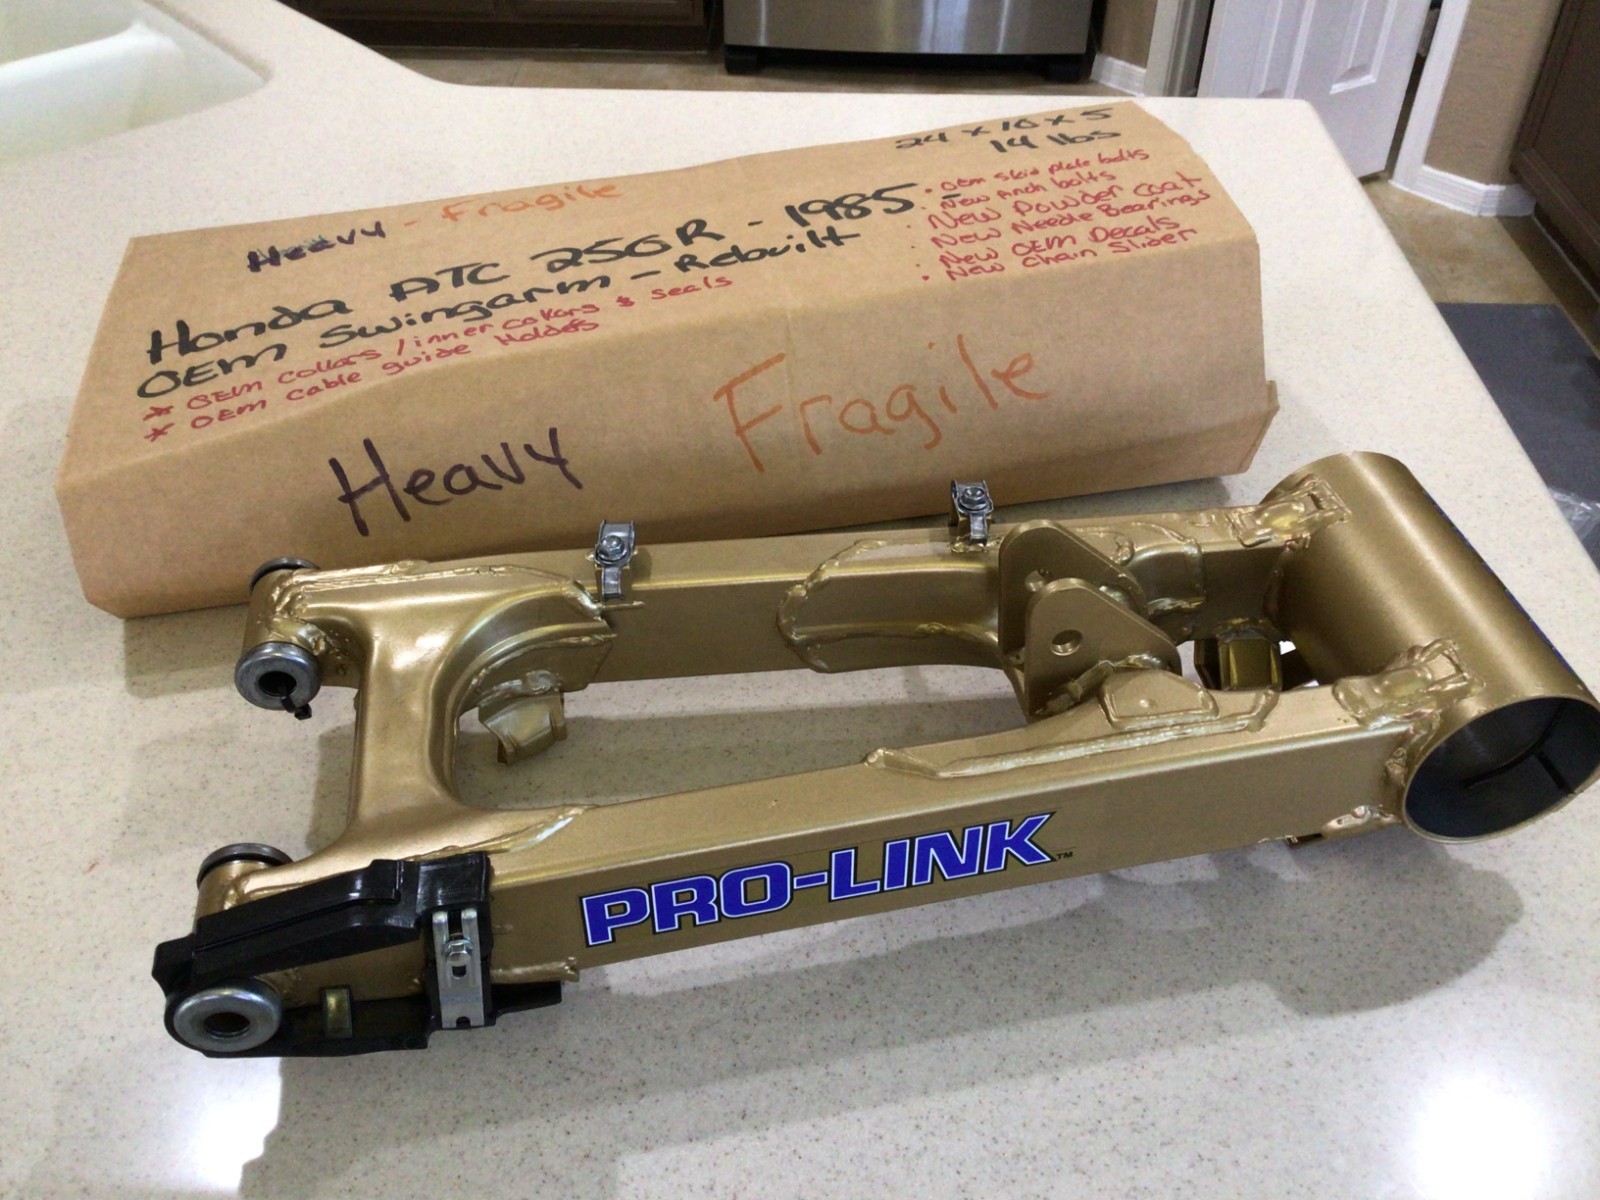 24 x 10 x 5
14 lbs
Heavy - Fragile
Honda ATC 250R - 1985 -
OEM Swingarm - Rebuilt
* OEM collars / inner collars & seals
* OEM cable guide Holders
• OEM Skid plate bolts
• New Arch bolts
• New Powder coat
• New Needle Bearings
• New OEM Decals
• New Chain Slider
Heavy Fragile
PRO-LINK™